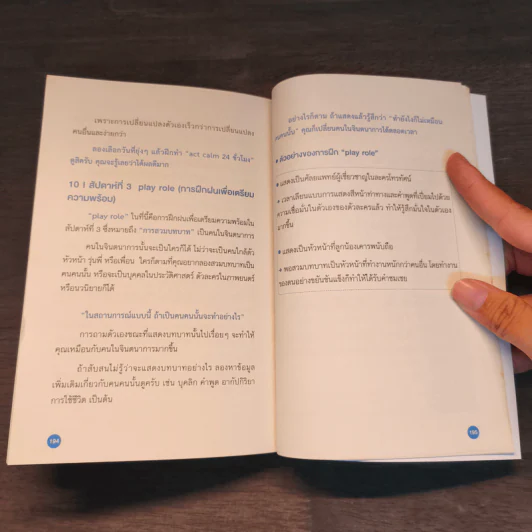 เพราะการเปลี่ยนแปลงตัวเองเร็วกว่าการเปลี่ยนแปลง
คนอื่นและง่ายกว่า
ลองเลือกวันที่ยุ่งๆ แล้วฝึกทำ "act calm 24 ชั่วโมง"
ดูสิครับ คุณจะรู้เลยว่าได้ผลดีมาก
10 I สัปดาห์ที่ 3 play role (การฝึกฝนเพื่อเตรียม
ความพร้อม)
"play role" ในที่นี้คือการฝึกฝนเพื่อเตรียมความพร้อมใน
สัปดาห์ที่ 3 ซึ่งหมายถึง "การสวมบทบาท" เป็นคนในจินตนาการ
คนในจินตนาการนั้นจะเป็นใครก็ได้ ไม่ว่าจะเป็นคนใกล้ตัว
หัวหน้า รุ่นพี่ หรือเพื่อน ใครก็ตามที่คุณอยากลองสวมบทบาทเป็น
คนคนนั้น หรือจะเป็นบุคคลในประวัติศาสตร์ ตัวละครในภาพยนตร์
หรือนวนิยายก็ได้
"ในสถานการณ์แบบนี้ ถ้าเป็นคนคนนั้นจะทำอย่างไร"
การถามตัวเองขณะที่แสดงบทบาทนั้นไปเรื่อยๆ จะทำให้
คุณเหมือนกับคนในจินตนาการมากขึ้น
ถ้าสับสนไม่รู้ว่าจะแสดงบทบาทอย่างไร ลองหาข้อมูล
เพิ่มเติมเกี่ยวกับคนคนนั้นดูครับ เช่น บุคลิก คำพูด อากัปกิริยา
การใช้ชีวิต เป็นต้น
194
อย่างไรก็ตาม ถ้าแสดงแล้วรู้สึกว่า "ทำยังไงก็ไม่เหมือน
คนคนนั้น" คุณก็เปลี่ยนคนในจินตนาการได้ตลอดเวลา
ตัวอย่างของการฝึก "play role"
แสดงเป็นศัลยแพทย์ผู้เชี่ยวชาญในละครโทรทัศน์
เวลาเลียนแบบการแสดงสีหน้าท่าทางและคำพูดที่เปี่ยมไปด้วย
ความเชื่อมั่นในตัวเองของตัวละครแล้ว ทำให้รู้สึกมั่นใจในตัวเอง
มากขึ้น
แสดงเป็นหัวหน้าที่ลูกน้องเคารพนับถือ
พอสวมบทบาทเป็นหัวหน้าที่ทำงานหนักกว่าคนอื่น โดยทำงาน
ของตนอย่างขยันขันแข็งก็ทำให้ได้รับคำชมเชย
195